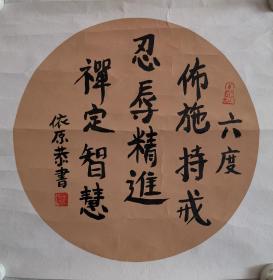 六度
佈施持戒
忍辱精進
禪定智慧
依原恭書